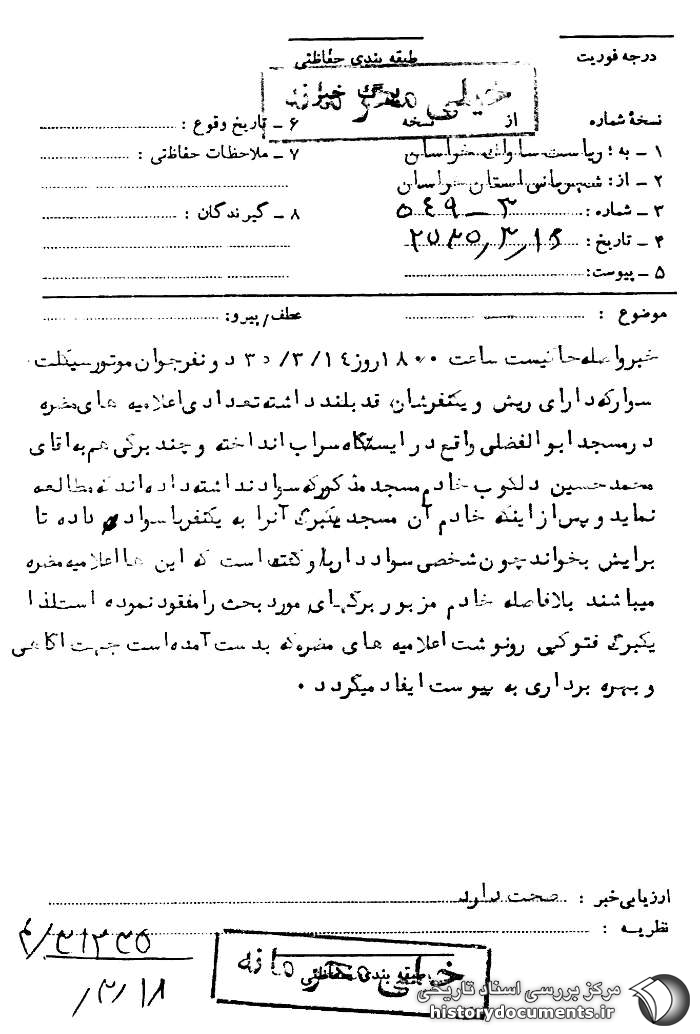 درجه فوریت
طبقه بندی حفاظتی
برگ خبر
خیلی محرمانه
نسخهٔ شماره از نسخه
۱ ـ به : ریاست ساواک خراسان
۲ ـ از : شهربانی استان خراسان
۳ ـ شماره : ۳ ـ ۵۴۹
۴ ـ تاریخ :
۵ ـ پیوست :
۶ ـ تاریخ وقوع :
۷ ـ ملاحظات حفاظتی :
۸ ـ گیرندگان :
موضوع : عطف/ پیرو:
خبرواصله حاکیست ساعت ۱۸۰۰ روز ۳۵/۳/۱۴ دو نفرجوان موتورسیکلت
سوارکه دارای ریش و یکنفرشان قد بلند داشته تعدادی اعلامیه های مضره
درمسجد ابوالفضلی واقع در ایستگاه سراب انداخته و چند برگی هم به اقای
محمدحسین دلکوب خادم مسجد مذکورکه سواد نداشته داده اند که مطالعه
نماید و پس از اینکه خادم آن مسجد یکبرگ آنرا به یکنفر با سواد داده تا
برایش بخواند چون شخصی سواد دار باو گفته است که این ها اعلامیه مضره
میباشند بلافاصله خادم مزبور برگهای مورد بحث را مفقود نموده است لذا
یکبرگ فتوکپی رونوشت اعلامیه های مضره که بدست آمده است جهت اگاهی
و بهره برداری به پیوست ایفاد میگردد ۰
ارزیابی خبر : صحت دارد
نظریه :
طبقه بندی حفاظتی
خیلی محرمانه
۳/۱۸/
مرکز بررسی اسناد تاریخی
historydocuments.ir